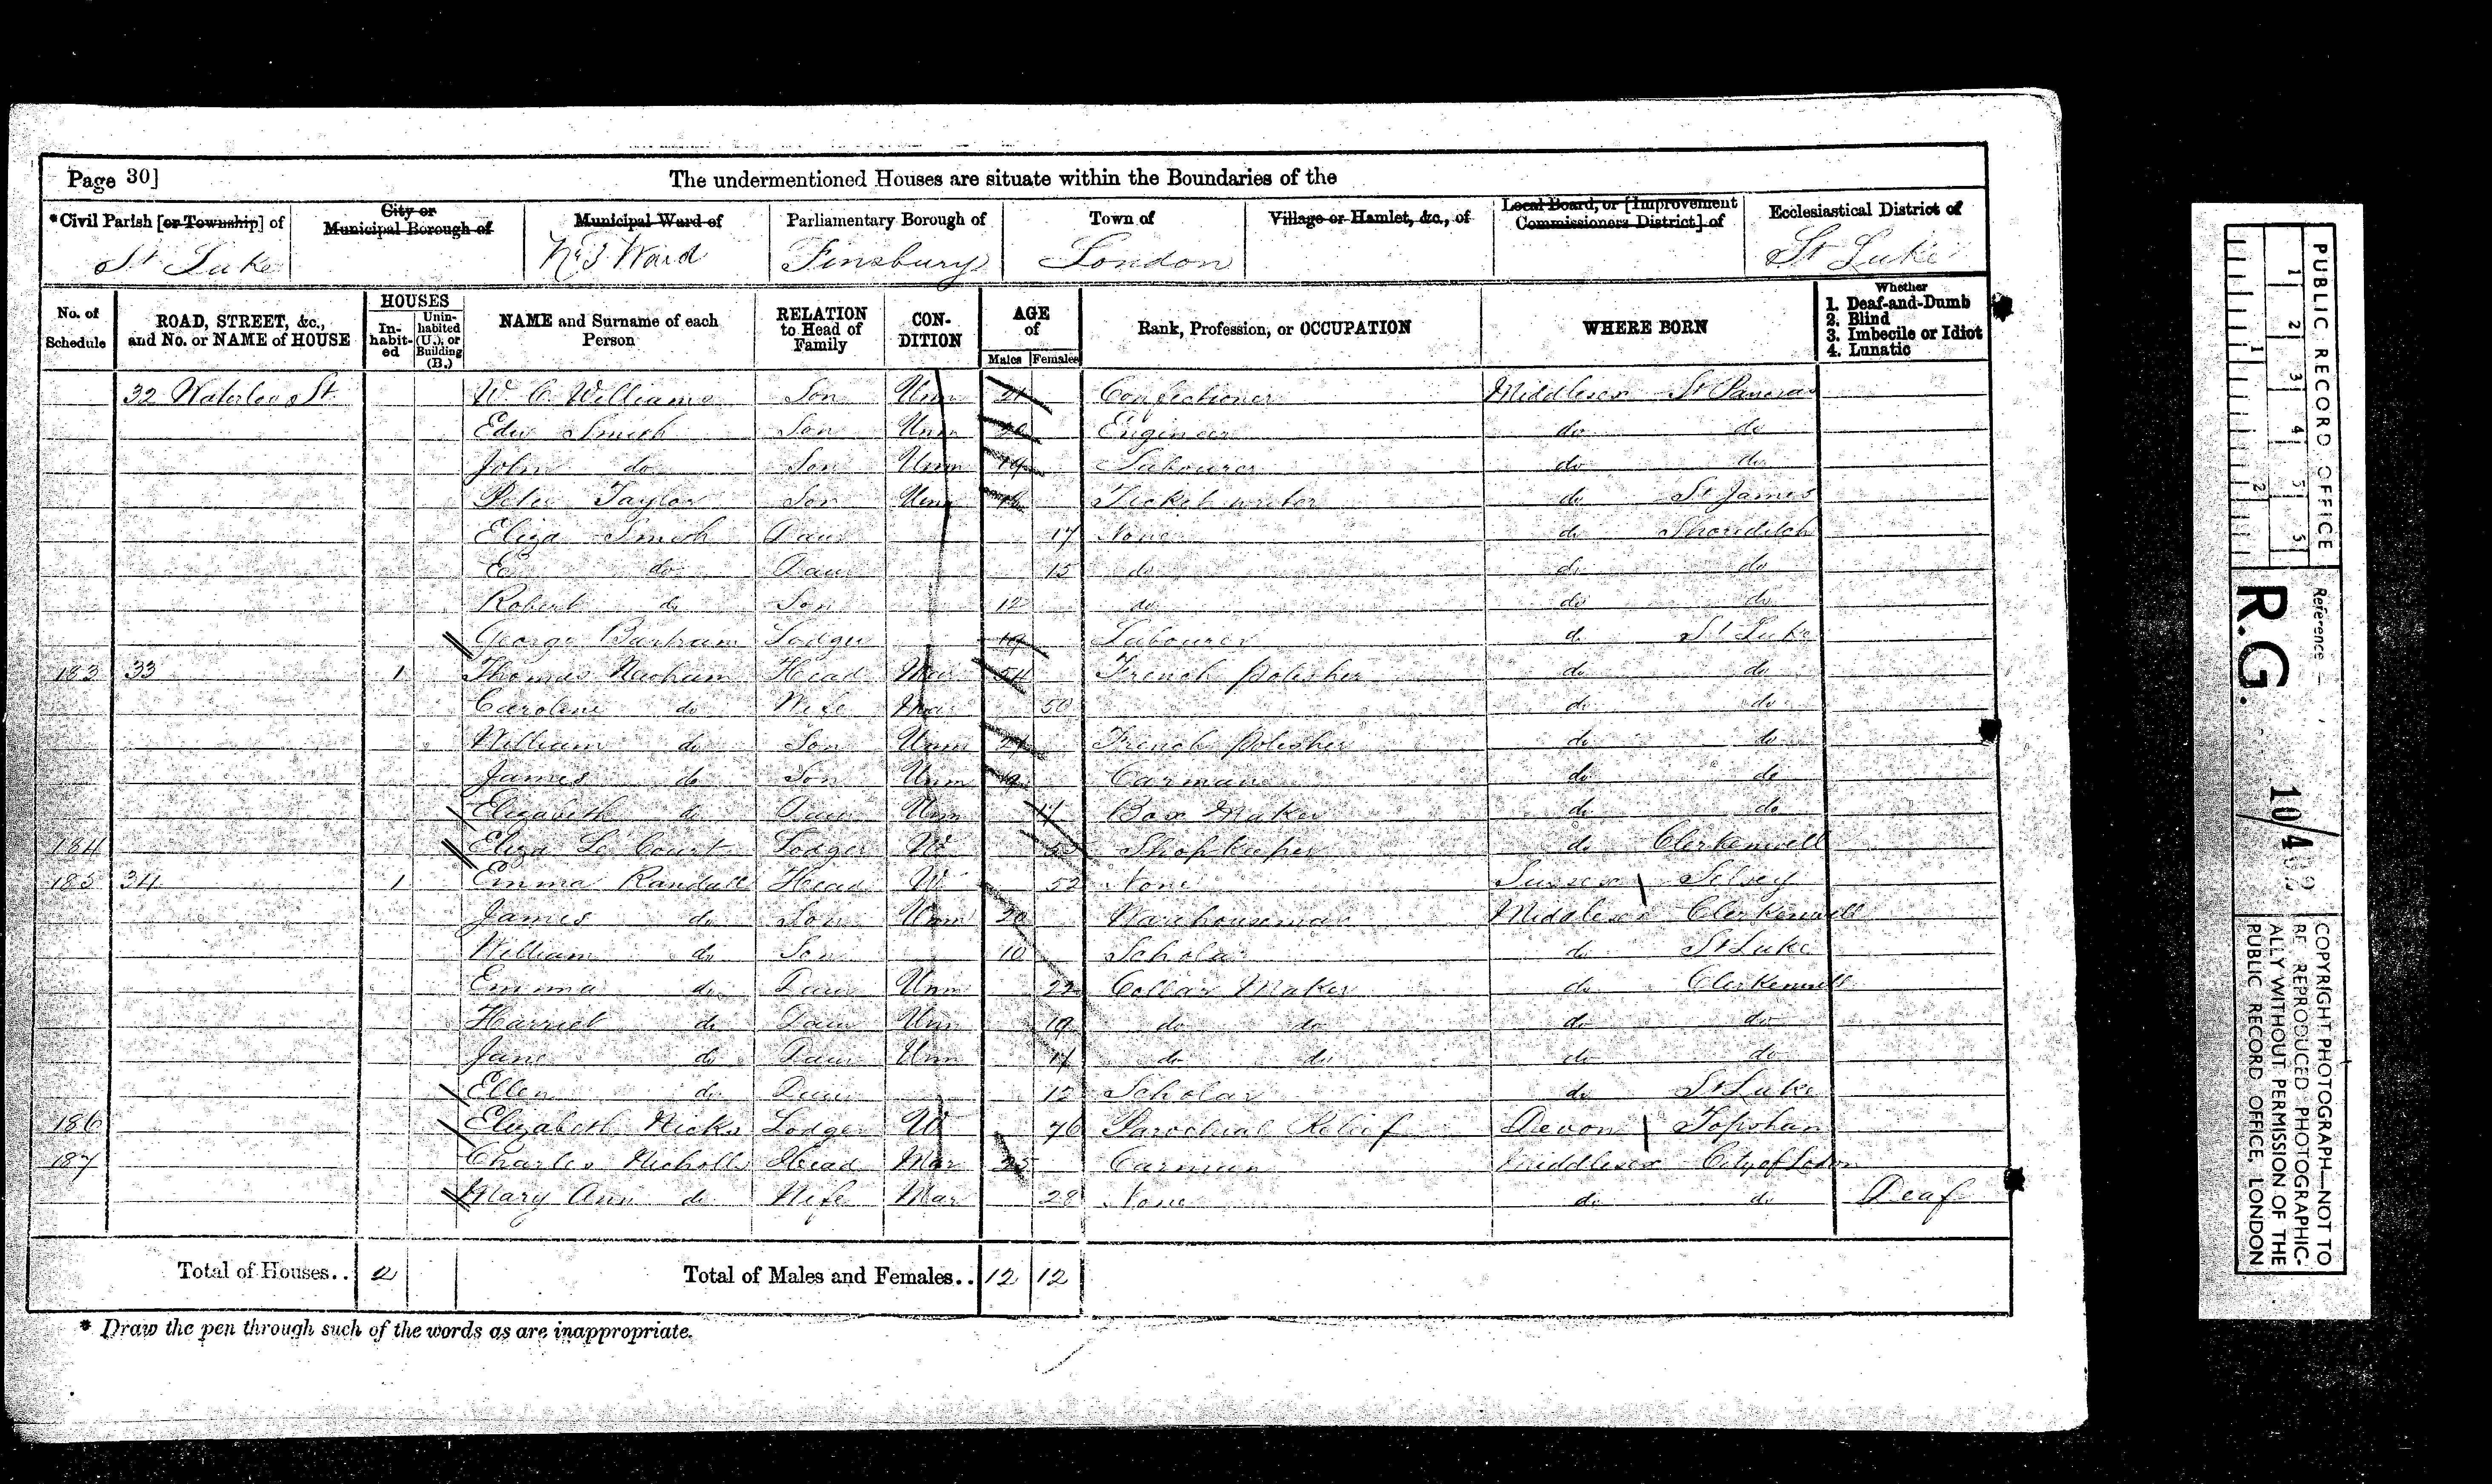 Page 30]
The undermentioned Houses are situate within the Boundaries of the
*Civil Parish [or Township] of
City or Municipal Borough of
Municipal Ward of
Parliamentary Borough of
Town of
Village or Hamlet, &c., of
Local Board, or [Improvement Commissioners District] of
Ecclesiastical District of
St Luke
No 3 Ward
Finsbury
London
St Luke
No. of Schedule
ROAD, STREET, &c., and No. or NAME of HOUSE
HOUSES
In-habit-ed
Unin-habited (U.), or Building (B.)
NAME and Surname of each Person
RELATION to Head of Family
CON-DITION
AGE of
Males
Females
Rank, Profession, or OCCUPATION
WHERE BORN
Whether
1. Deaf-and-Dumb
2. Blind
3. Imbecile or Idiot
4. Lunatic
32 Waterloo St W C Williams Son Unm 21 Confectioner Middlesex St Pancras
Edw Smith Son Unm Engineer do do
John do Son Unm 19 Labourer do do
Peter Taylor Son Unm Ticket writer do St James
Eliza Smith Daur 17 None do Shoreditch
E do Daur 15 do do do
Robert do Son 12 do do do
George Bartram Lodger 19 Labourer do St Luke
183 33 1 Thomas Head Mar 54 French Polisher do do
Caroline do Wife Mar 50 do do
William do Son Unm 21 French Polisher do do
James do Son Unm 19 Carman do do
Elizabeth do Daur Unm Box Maker do do
184 Eliza Le Court Lodger W Shopkeeper do Clerkenwell
185 34 1 Emma Randall Head W 52 None Sussex Selsey
James do Son Unm 20 Warehouseman Middlesex Clerkenwell
William do Son 10 Scholar do St Luke
Emma do Daur Unm 22 Collar Maker do Clerkenwell
Harriet do Daur Unm 19 do do do do
Jane do Daur Unm do do do do
Ellen do Daur 12 Scholar do St Luke
186 Elizabeth Hicks Lodger W 76 Parochial Relief Devon Topsham
187 Charles Nicholls Head Mar 35 Carman Middlesex City of Lodon
Mary Ann do Wife Mar 28 None do do Deaf
Total of Houses.. 2
Total of Males and Females.. 12 12
* Draw the pen through such of the words as are inappropriate.
PUBLIC RECORD OFFICE
1 2 3 4 5 5
1 2
Reference
R.G. 10/409
COPYRIGHT PHOTOGRAPH—NOT TO
BE REPRODUCED PHOTOGRAPHIC-
ALLY WITHOUT PERMISSION OF THE
PUBLIC RECORD OFFICE, LONDON